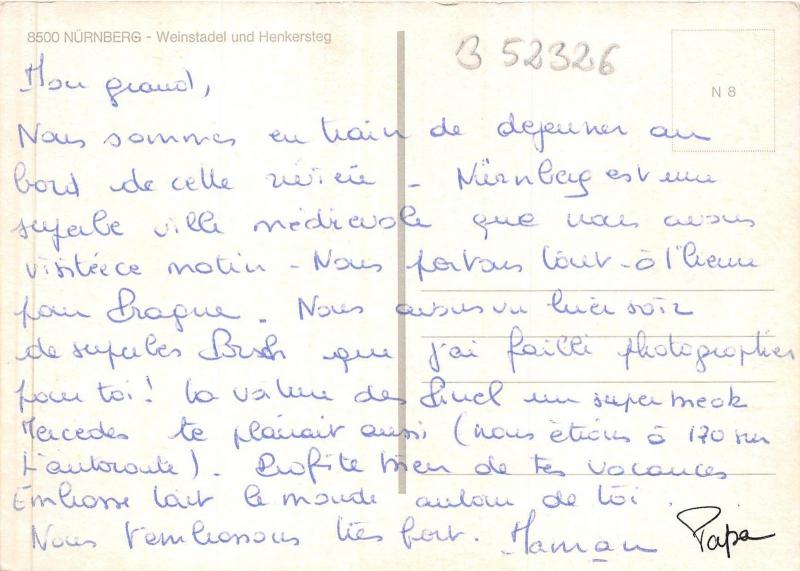 8500 NÜRNBERG - Weinstadel und Henkersteg
B 52326
N 8
Mon grand,
Nous sommes en train de dejeuner au
bord de cette rivière - Nürnberg est une
superbe ville médievale que nous avons
visitée ce matin - Nous partons tout-à l'heure
pour Prague. Nous avons vu hier soir
de superbes Bush que j'ai failli photographier
pour toi! La voiture des un super break
Mercedes te plairait aussi (nous étions à 170 sur
l'autoroute). Profite bien de tes vacances
Embrasse tout le monde autour de toi.
Nous t'embrassons très fort. Maman Papa